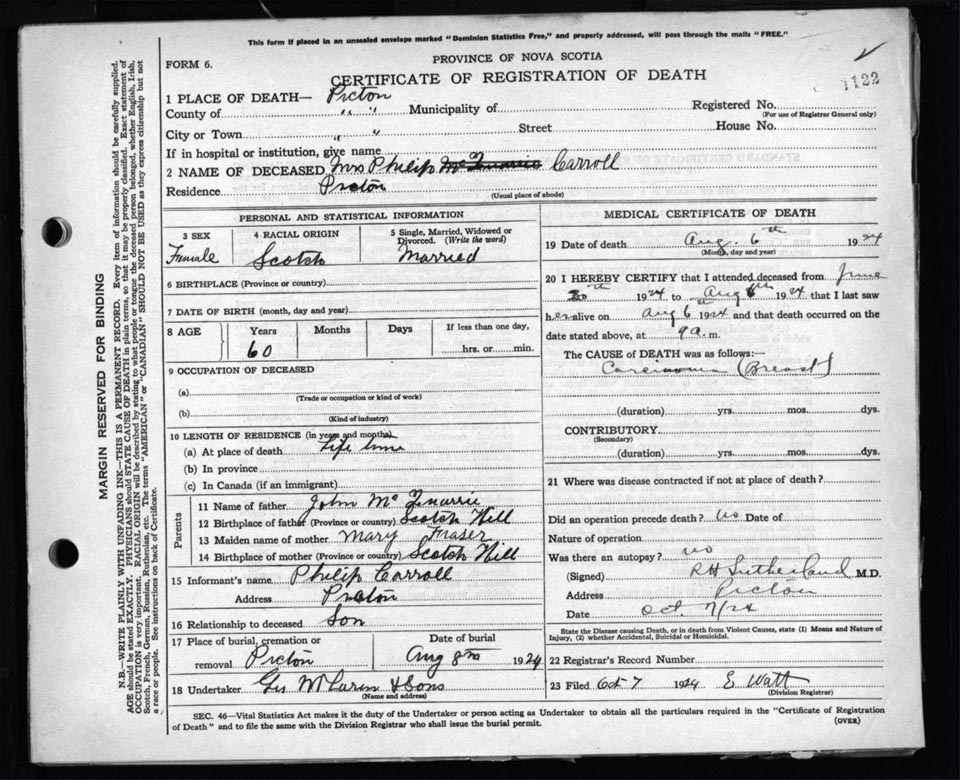 This form if placed in an unsealed envelope marked "Dominion Statistics Free," and properly addressed, will pass through the mails "FREE."
FORM 6.
PROVINCE OF NOVA SCOTIA
CERTIFICATE OF REGISTRATION OF DEATH
1122
1 PLACE OF DEATH— Picton
County of " " Municipality of Registered No.
(For use of Registrar General only)
City or Town " " Street House No.
If in hospital or institution, give name
2 NAME OF DECEASED Mrs Philip Carroll
Residence Picton (Usual place of abode)
PERSONAL AND STATISTICAL INFORMATION
3 SEX Female
4 RACIAL ORIGIN Scotch
5 Single, Married, Widowed or Divorced. (Write the word) Married
6 BIRTHPLACE (Province or country)
7 DATE OF BIRTH (month, day and year)
8 AGE Years Months Days If less than one day,
60 hrs. or min.
9 OCCUPATION OF DECEASED
(a)
(Trade or occupation or kind of work)
(b)
(Kind of industry)
10 LENGTH OF RESIDENCE (in years and months)
(a) At place of death Life time
(b) In province
(c) In Canada (if an immigrant)
Parents
11 Name of father John
12 Birthplace of father (Province or country) Scotch Hill
13 Maiden name of mother Mary Fraser
14 Birthplace of mother (Province or country) Scotch Hill
15 Informant's name Philip Carroll
Address Picton
16 Relationship to deceased Son
17 Place of burial, cremation or removal Picton
Date of burial Aug 8th 1924
18 Undertaker Geo McLaren & Sons
(Name and address)
MEDICAL CERTIFICATE OF DEATH
19 Date of death Aug. 6th 1924
(Month, day and year)
20 I HEREBY CERTIFY that I attended deceased from June
1924 to Aug 6th 1924 that I last saw
her alive on Aug 6 1924 and that death occurred on the
date stated above, at 9 a. m.
The CAUSE of DEATH was as follows:—
Carcinoma (Breast)
(duration) yrs. mos. dys.
CONTRIBUTORY
(Secondary)
(duration) yrs. mos. dys.
21 Where was disease contracted if not at place of death?
Did an operation precede death? no Date of
Nature of operation
Was there an autopsy? no
(Signed) RH Sutherland M.D.
Address Picton
Date Oct 7/24
State the Disease causing Death, or in death from Violent Causes, state (1) Means and Nature of Injury, (2) whether Accidental, Suicidal or Homicidal.
22 Registrar's Record Number
23 Filed Oct 7 1924 E Watt
(Division Registrar)
SEC. 46—Vital Statistics Act makes it the duty of the Undertaker or person acting as Undertaker to obtain all the particulars required in the "Certificate of Registration
of Death" and to file the same with the Division Registrar who shall issue the burial permit.
(OVER)
MARGIN RESERVED FOR BINDING
N.B.—WRITE PLAINLY WITH UNFADING INK—THIS IS A PERMANENT RECORD. Every item of information should be carefully supplied.
AGE should be stated EXACTLY. PHYSICIANS should STATE CAUSE OF DEATH in plain terms, so that it may be properly classified. Exact statement of
OCCUPATION is very important. RACIAL ORIGIN will be described by stating to what people or tongue the deceased person belonged, whether English, Irish,
Scotch, French, German, Russian, Ruthenian, etc. The terms "AMERICAN" or "CANADIAN" SHOULD NOT BE USED as they express citizenship but not
a race or people. See instructions on back of Certificate.